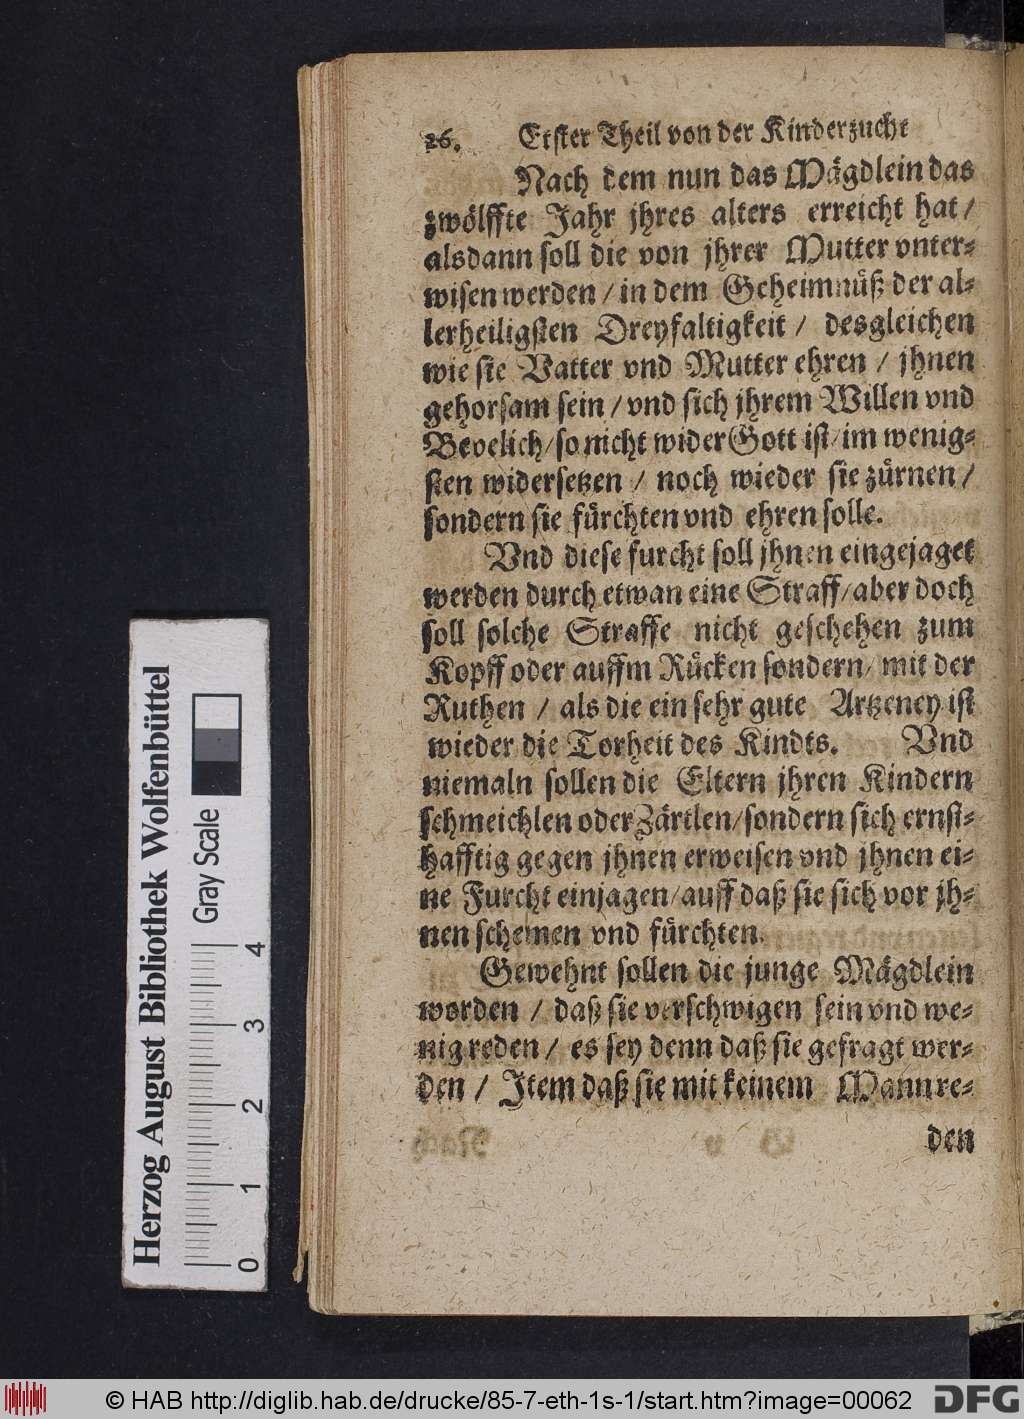 26. Erster Theil von der Kinderzucht
Nach dem nun das Mägdlein das
zwölffte Jahr jhres alters erreicht hat /
alsdann soll die von jhrer Mutter vnter-
wisen werden / in dem Geheimnüß der al-
lerheiligsten Dreyfaltigkeit / desgleichen
wie sie Vatter vnd Mutter ehren / jhnen
gehorsam sein / vnd sich jhrem Willen vnd
Bevelich / so nicht wider Gott ist / im wenig-
sten widersetzen / noch wieder sie zürnen /
sondern sie fürchten vnd ehren solle.
Vnd diese furcht soll jhnen eingejaget
werden durch etwan eine Straff / aber doch
soll solche Straffe nicht geschehen zum
Kopff oder auffm Rücken sondern / mit der
Ruthen / als die ein sehr gute Artzeney ist
wieder die Torheit des Kindts. Vnd
niemaln sollen die Eltern jhren Kindern
schmeichlen oder Zärtlen / sondern sich ernst-
hafftig gegen jhnen erweisen vnd jhnen ei-
ne Furcht einjagen / auff daß sie sich vor jh-
nen schemen vnd fürchten.
Gewehnt sollen die junge Mägdlein
worden / daß sie verschwigen sein vnd we-
nig reden / es sey denn daß sie gefragt wer-
den / Item daß sie mit keinem Mann re-
den
Herzog August Bibliothek Wolfenbüttel
Gray Scale
0 1 2 3 4
© HAB http://diglib.hab.de/drucke/85-7-eth-1s-1/start.htm?image=00062
DFG